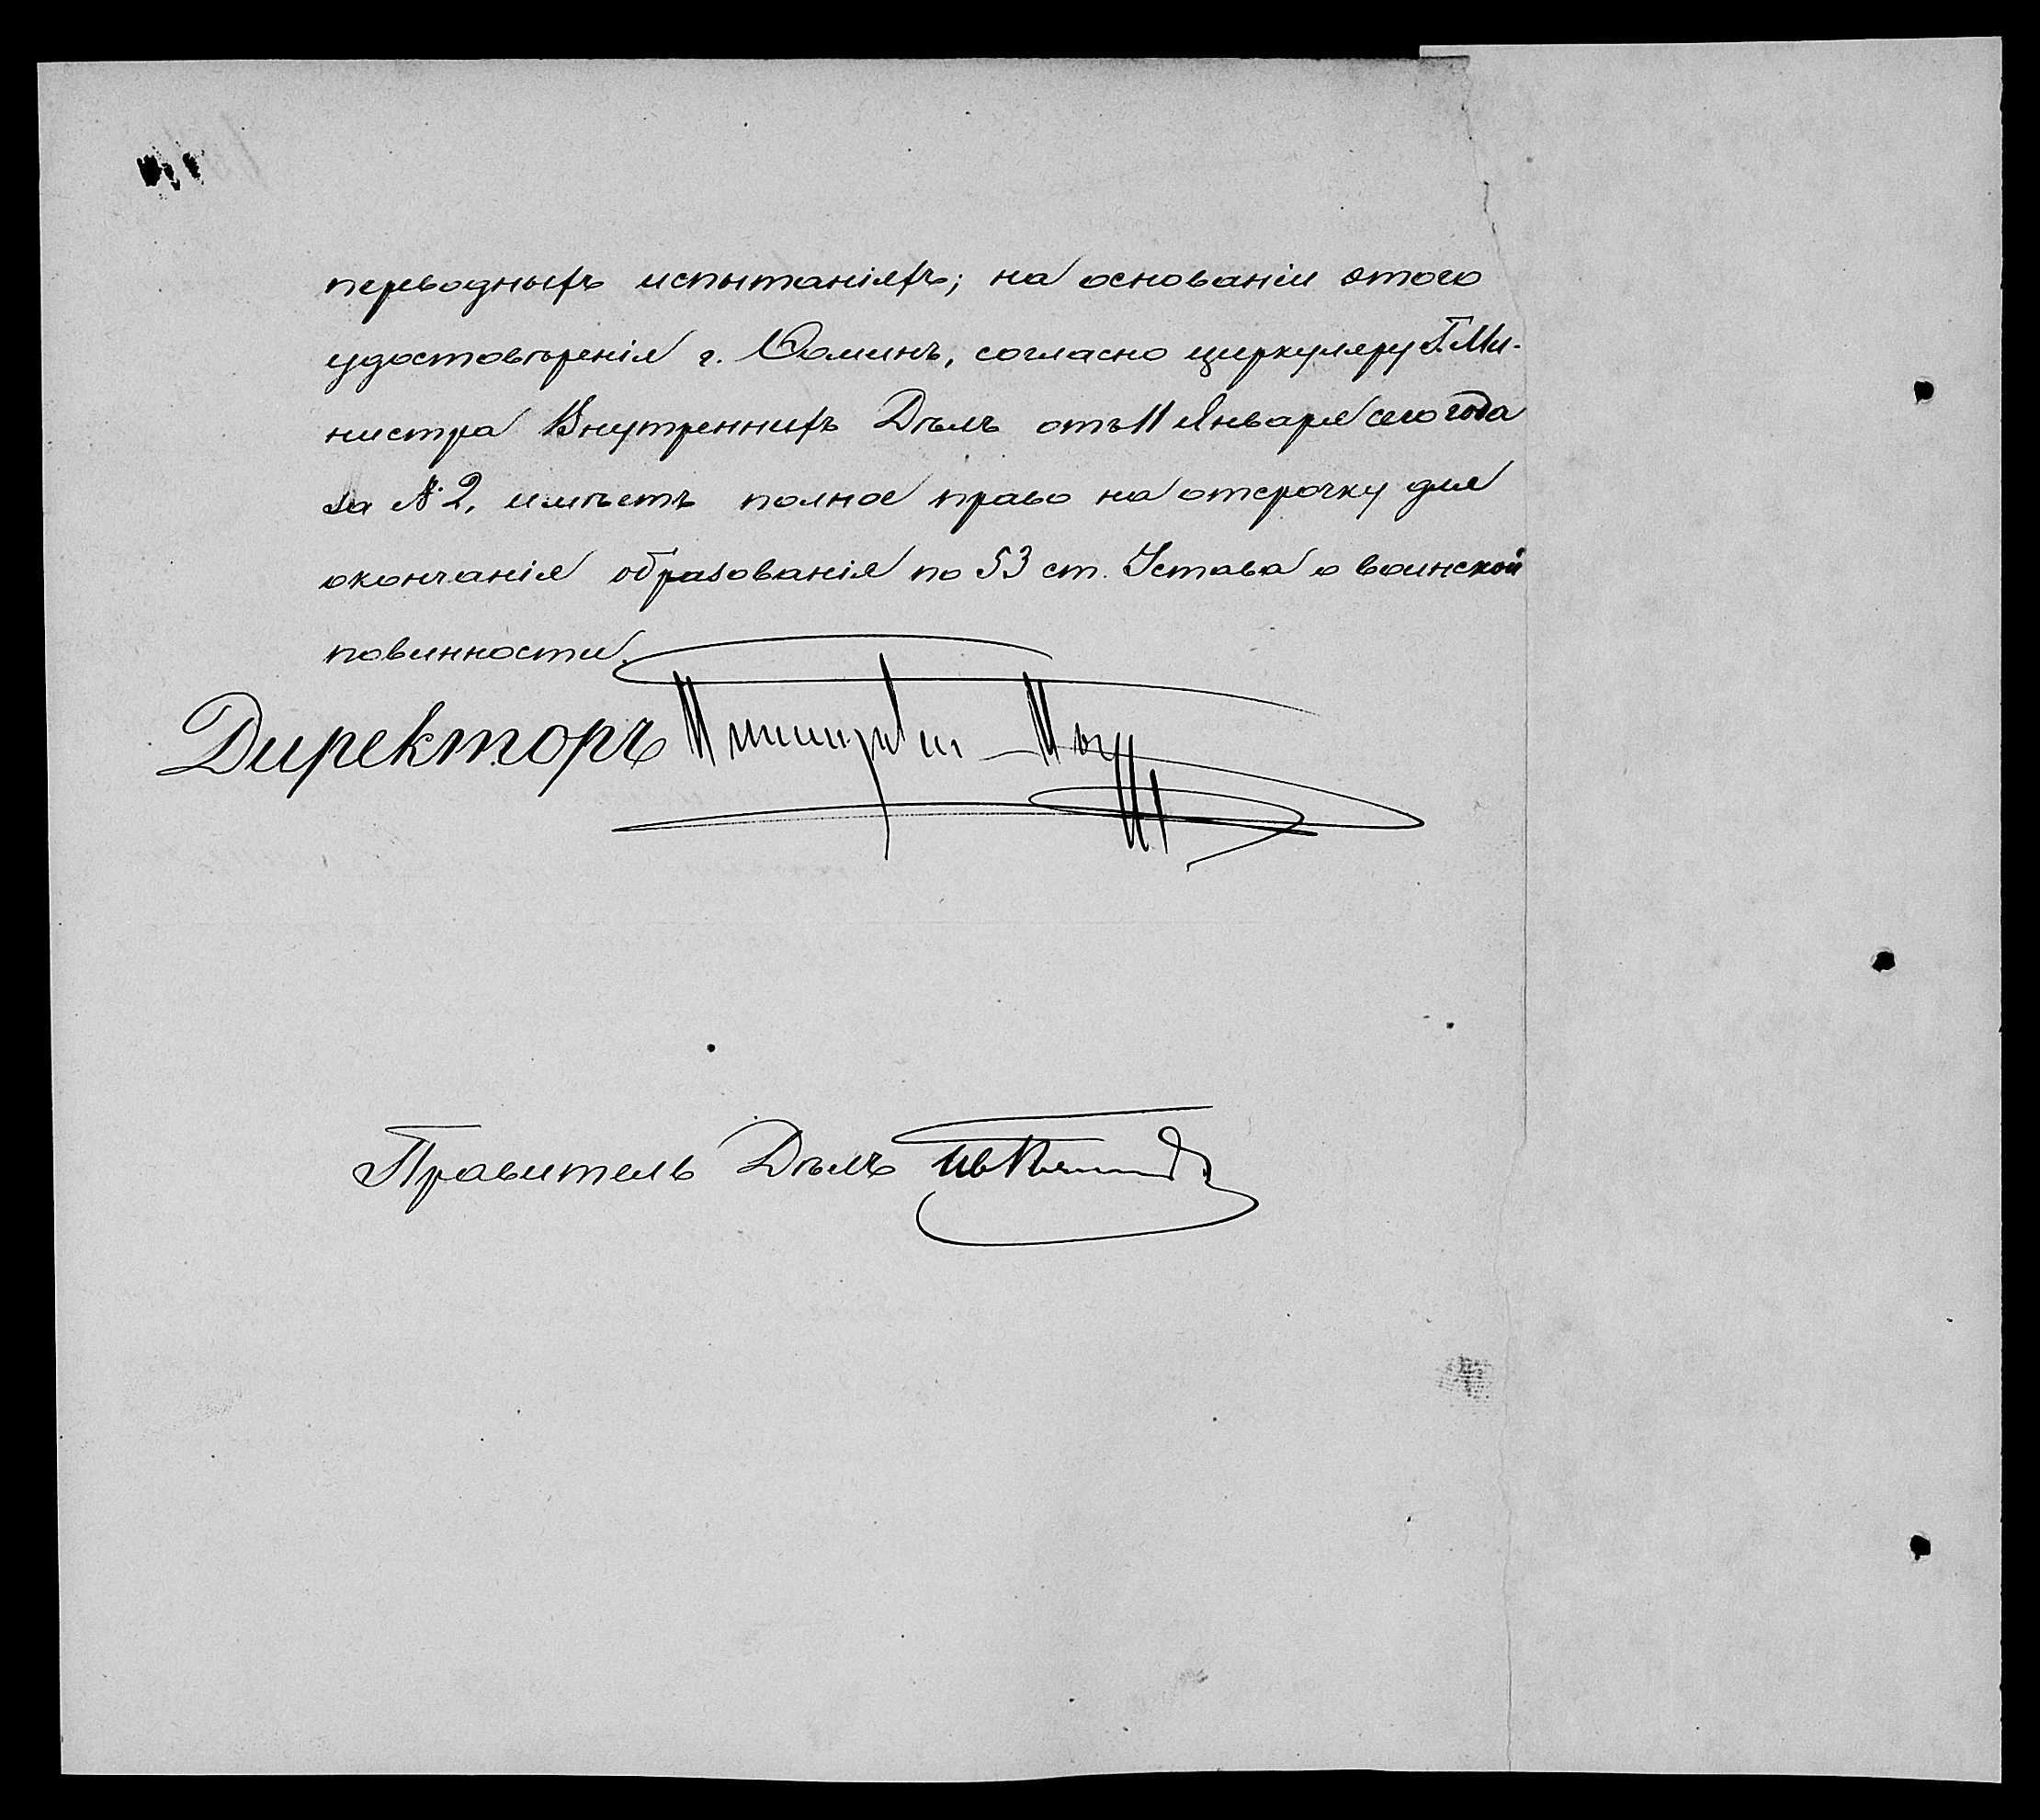 переводныхъ испытаніяхъ; на основаніи этого
удостовѣренія г. Соминъ, согласно циркуляру Г. Ми-
нистра Внутреннихъ Дѣлъ отъ 11 Января сего года
за № 2, имѣетъ полное право на отсрочку для
окончанія образованія по 53 ст. Устава о воинской
повинности.
Директоръ
Правитель Дѣлъ